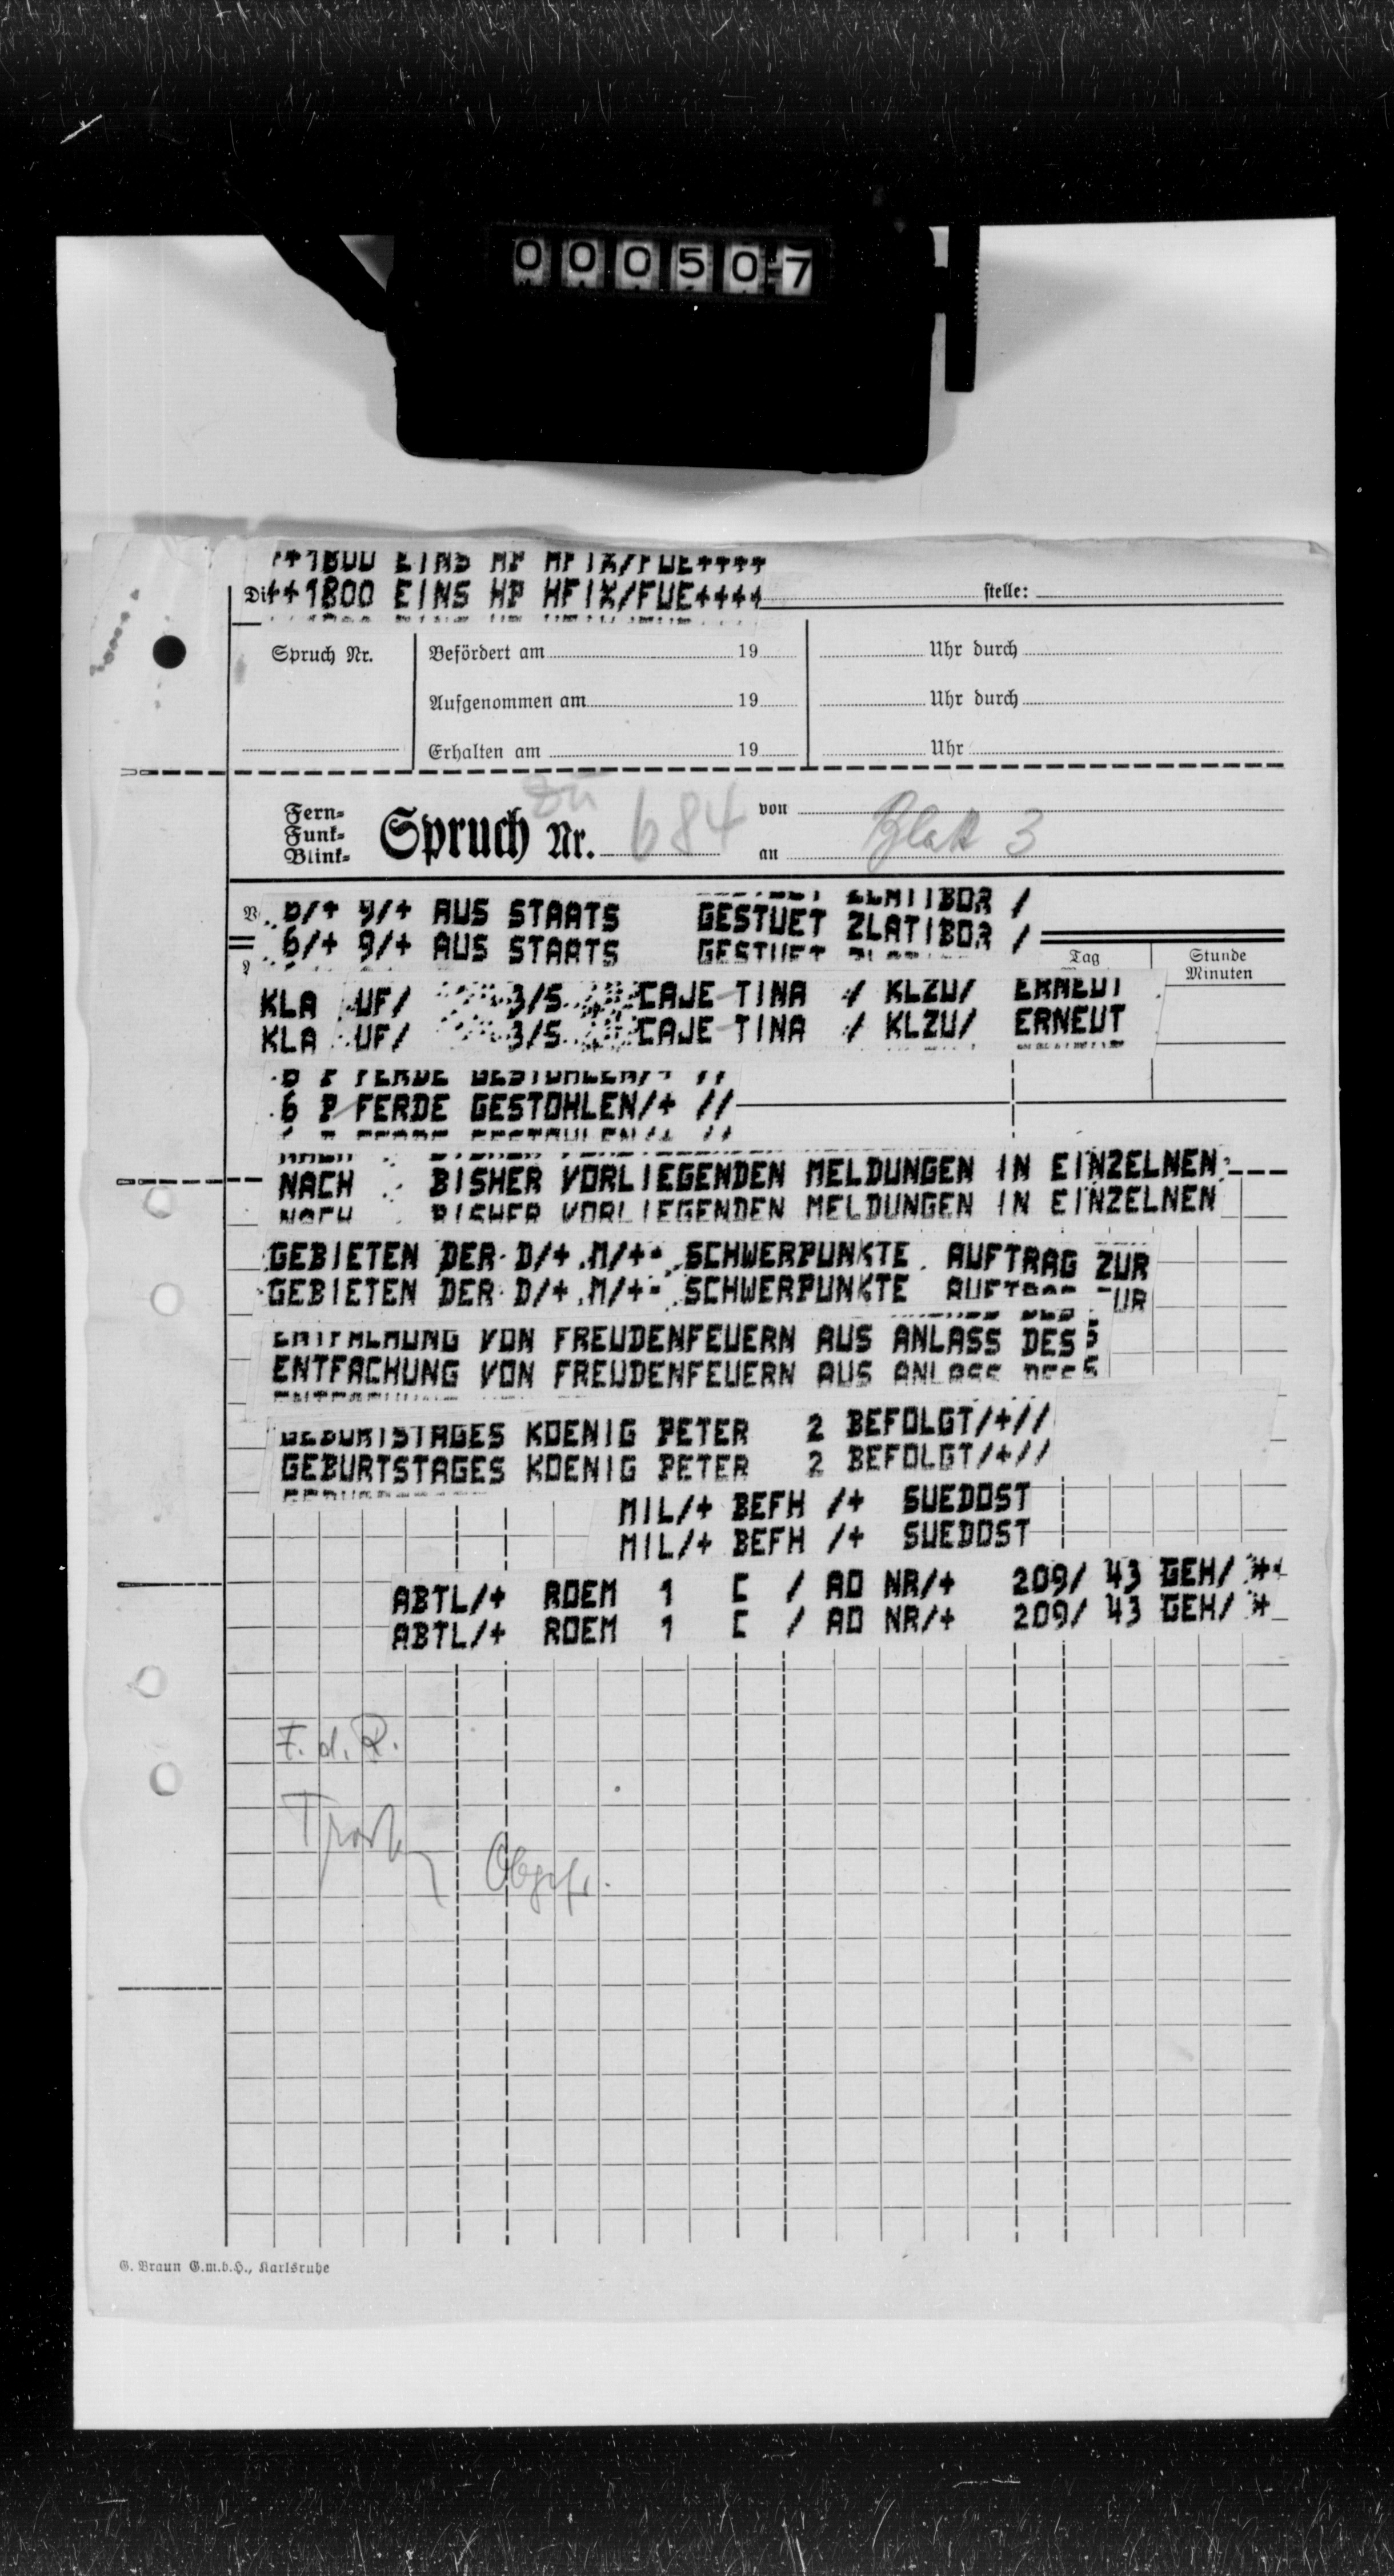 000507
++1800 EINS HP HFIX/FUE++++
stelle:
Spruch Nr.
Befördert am 19 Uhr durch
Aufgenommen am 19 Uhr durch
Erhalten am 19 Uhr
Fern-
Funk-
Blink-
Spruch Nr. zu 684 von
an Blatt 3
6/+ 9/+ AUS STAATS GESTUET ZLATIBOR /
Tag
Stunde
Minuten
KLA UF/ 3/5 CAJE TINA / KLZU/ ERNEUT
6 P FERDE GESTOHLEN/+ //
NACH BISHER VORLIEGENDEN MELDUNGEN IN EINZELNEN
GEBIETEN DER D/+ M/+- SCHWERPUNKTE AUFTRAG ZUR
ENTFACHUNG VON FREUDENFEUERN AUS ANLASS DES
GEBURTSTAGES KOENIG PETER 2 BEFOLGT/+//
MIL/+ BEFH /+ SUEDOST
ABTL/+ ROEM 1 C / AO NR/+ 209/ 43 GEH/ *
F. d. R.
Obgefr.
G. Braun G.m.b.H., Karlsruhe